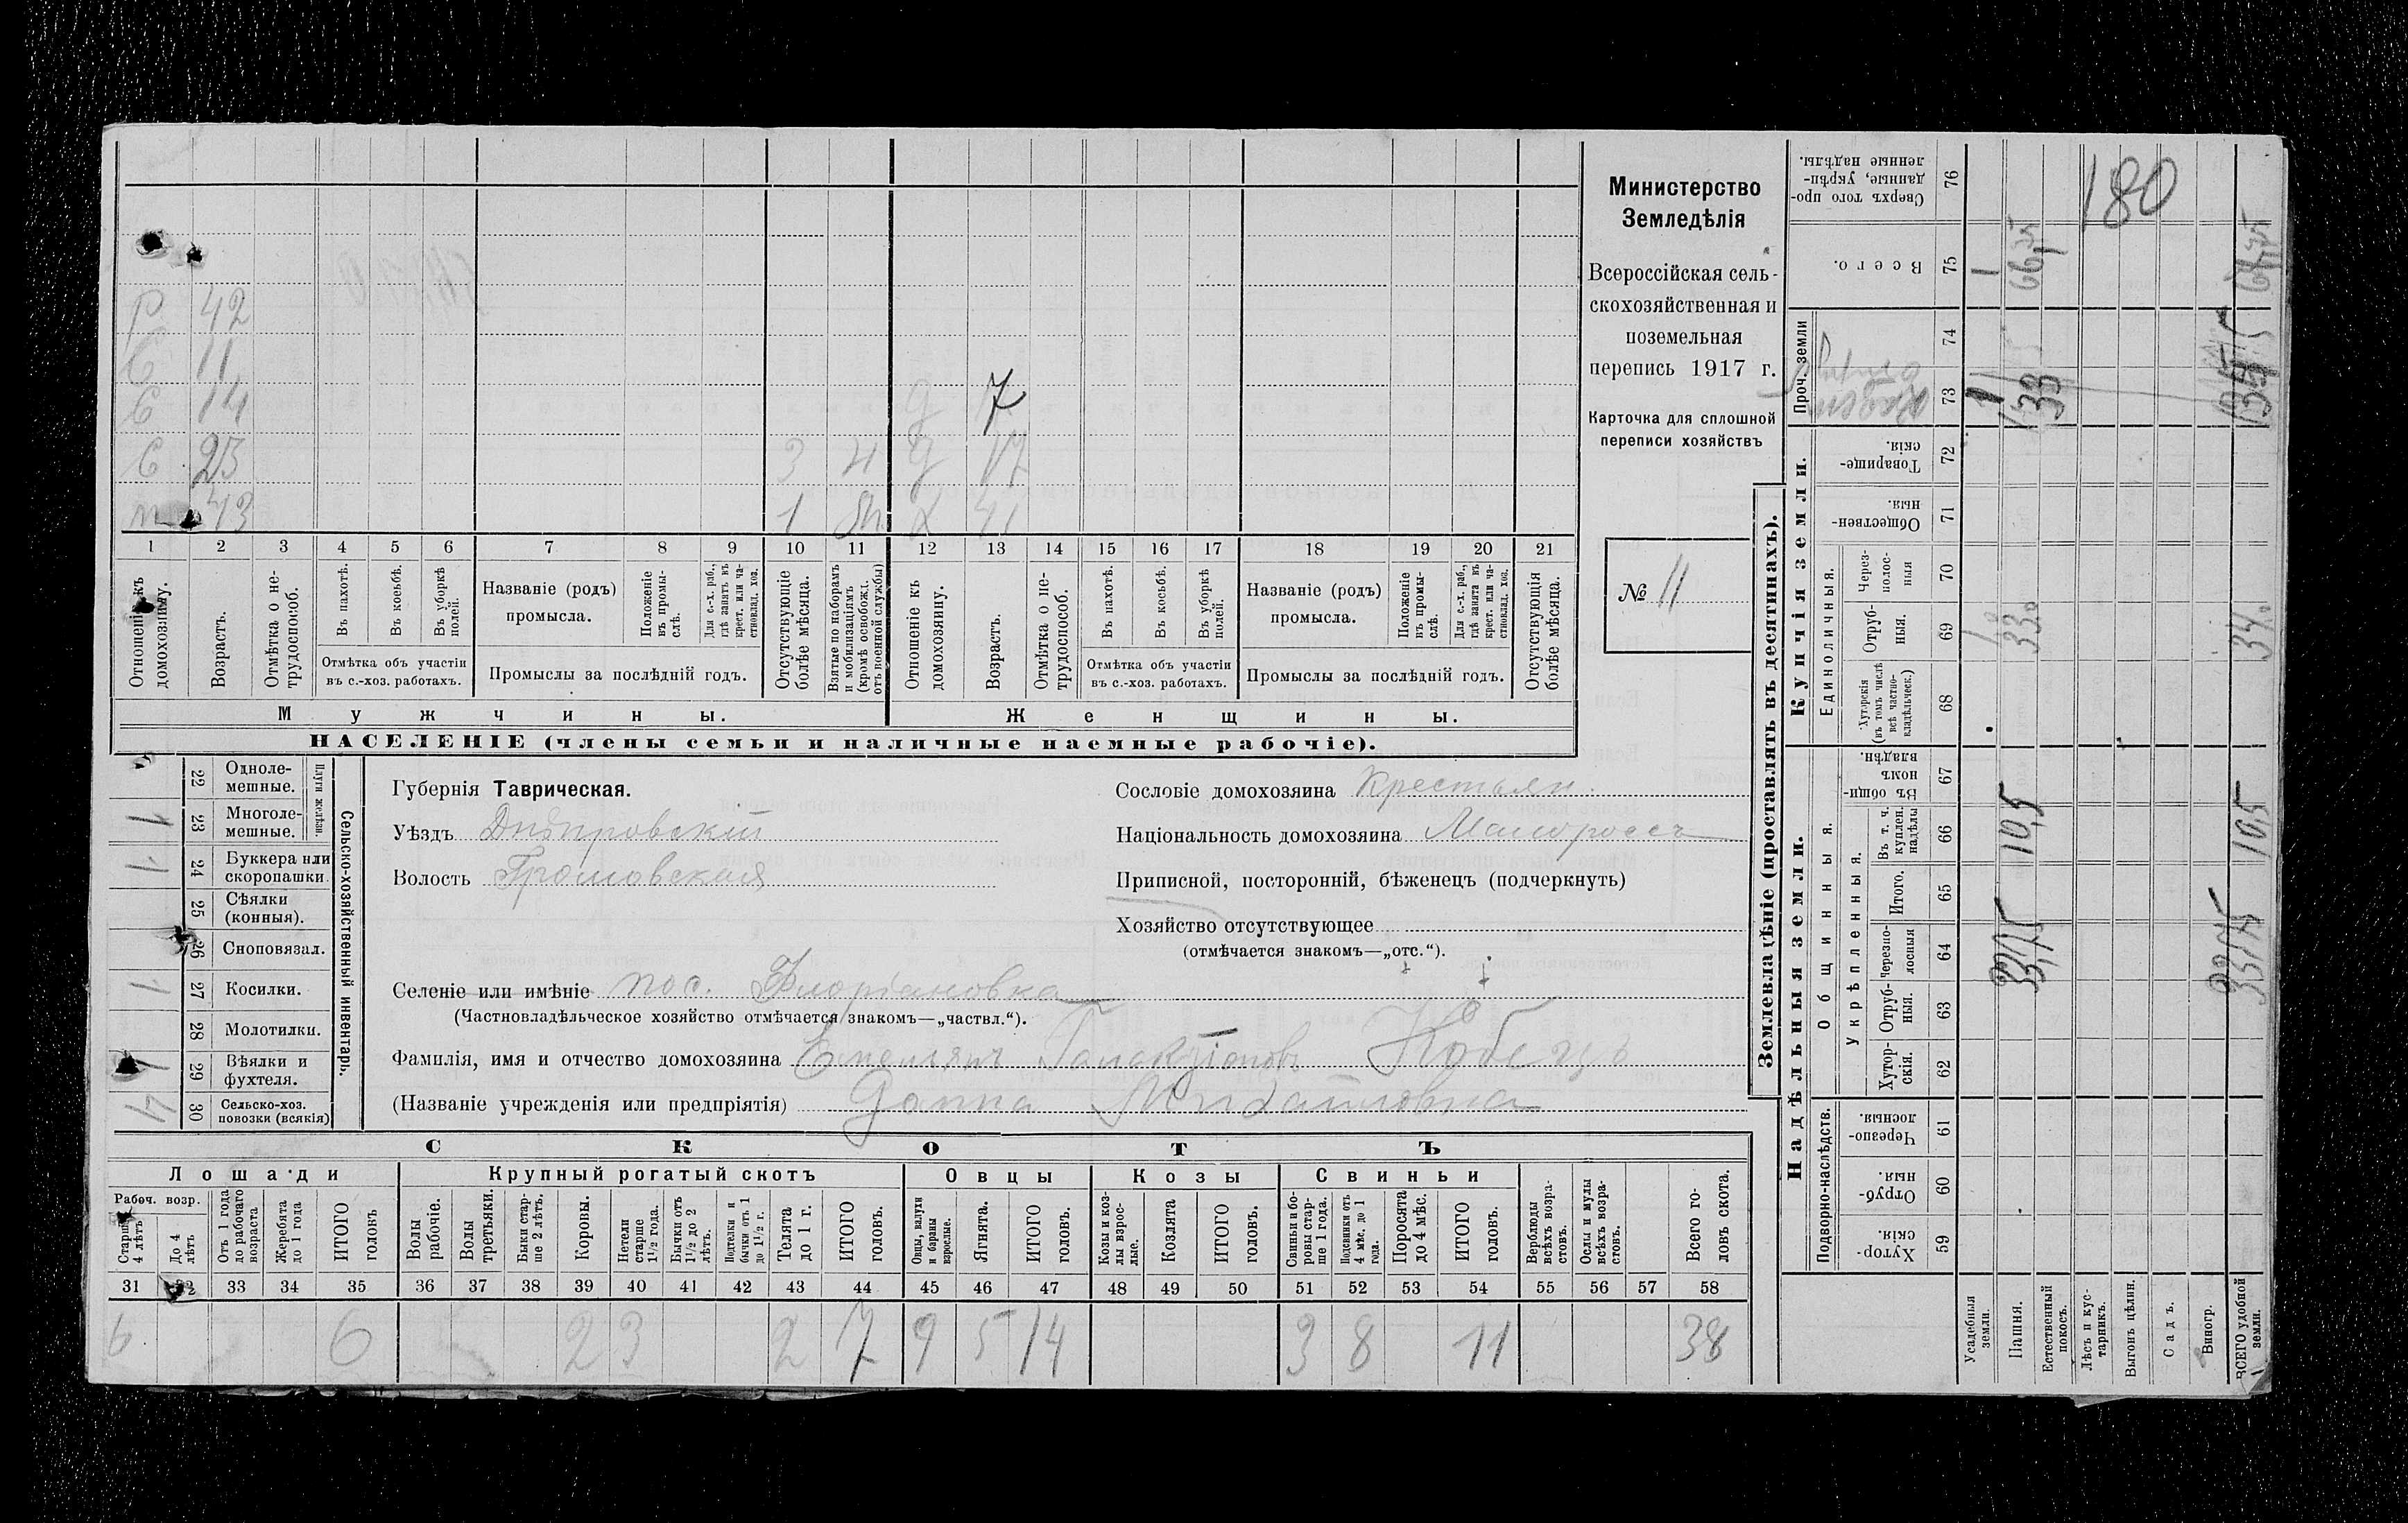 Министерство
Земледѣлія
Всероссійская сель-
скохозяйственная и
поземельная
перепись 1917 г.
Карточка для сплошной
переписи хозяйствъ
№ 11
Р 42
С 11
С 14
С 23
3
Д 7
Д 17
43
1
41
1 2 3 4 5 6 7 8 9 10 11 12 13 14 15 16 17 18 19 20 21
Отношеніе къ домохозяину.
Возрастъ.
Отмѣтка о не-трудоспособ.
Въ пахотѣ.
Въ косьбѣ.
Въ уборкѣ полей.
Отмѣтка объ участіи въ с.-хоз. работахъ.
Названіе (родъ) промысла.
Положеніе въ промы-слѣ.
Для с.-х. раб., гдѣ занятъ въ крест. или ча-стновлад. хоз.
Промыслы за послѣдній годъ.
Отсутствующіе болѣе мѣсяца.
Взятые по наборамъ и мобилизаціямъ (кромѣ освобожд. отъ военной службы)
Отношеніе къ домохозяину.
Возрастъ.
Отмѣтка о не-трудоспособ.
Въ пахотѣ.
Въ косьбѣ.
Въ уборкѣ полей.
Отмѣтка объ участіи въ с.-хоз. работахъ.
Названіе (родъ) промысла.
Положеніе въ промы-слѣ.
Для с.-х. раб., гдѣ занята въ крест. или ча-стновлад. хоз.
Промыслы за послѣдній годъ.
Отсутствующія болѣе мѣсяца.
Мужчины. Женщины.
НАСЕЛЕНІЕ (члены семьи и наличные наемные рабочіе).
Сельско-хозяйственный инвентарь.
Плуги желѣзн.
22 Одноле-мешные.
23 Многоле-мешные. 1
24 Буккера или скоропашки 1
25 Сѣялки (конныя).
26 Сноповязал.
27 Косилки. 1
28 Молотилки.
29 Вѣялки и фухтеля. 1
30 Сельско-хоз. повозки (всякія) 4
Губернія Таврическая.
Уѣздъ Днѣпровскій
Волость Громовская
Селеніе или имѣніе пос. Флоріановка
(Частновладѣльческое хозяйство отмѣчается знакомъ—„частвл.“).
Сословіе домохозяина Крестьян.
Національность домохозяина Малороссъ
Приписной, посторонній, бѣженецъ (подчеркнуть)
Хозяйство отсутствующее
(отмѣчается знакомъ—„отс.“).
Фамилія, имя и отчество домохозяина Емельянъ Галактіоновъ
(Названіе учрежденія или предпріятія) Домна Михайловна
СКОТЪ
Лошади Крупный рогатый скотъ Овцы Козы Свиньи
Рабоч. возр.
Старше 4 лѣтъ
До 4 лѣтъ
Отъ 1 года до рабочаго возраста
Жеребята до 1 года
ИТОГО головъ
Волы рабочіе.
Волы третьяки.
Быки стар-ше 2 лѣтъ.
Коровы.
Нетели старше 1½ года.
Бычки отъ 1½ до 2 лѣтъ.
Подтелки и бычки отъ 1 до 1½ г.
Телята до 1 г.
ИТОГО головъ.
Овцы, валухи и бараны взрослые.
Ягнята.
ИТОГО головъ.
Козы и коз-лы взрос-лые.
Козлята
ИТОГО головъ.
Свиньи и бо-ровы стар-ше 1 года.
Подсвинки отъ 4 мѣс. до 1 года.
Поросята до 4 мѣс.
ИТОГО головъ.
Верблюды всѣхъ возра-стовъ.
Ослы и мулы всѣхъ возра-стовъ.
Всего го-ловъ скота.
31 32 33 34 35 36 37 38 39 40 41 42 43 44 45 46 47 48 49 50 51 52 53 54 55 56 57 58
6 6 2 3 2 7 9 5 14 3 8 11 38
Землевладѣніе (проставлять въ десятинахъ).
Надѣльныя земли.
Купчія земли.
Проч. земли
Подворно-наслѣдств.
Общинныя.
Укрѣпленныя.
Единоличныя.
Хутор-скія. 59
Отруб-ныя. 60
Черезпо-лосныя. 61
Хутор-скія. 62
Отруб-ныя. 63
Черезпо-лосныя 64
Итого. 65
Въ т. ч. куплен. надѣлы 66
Въ общин-номъ владѣн. 67
Хуторскія (въ томъ числѣ всѣ частно-владѣльческ.) 68
Отруб-ныя. 69
Через-полос-ныя 70
Обществен-ныя. 71
Товарище-скія. 72
73
74
Всего. 75
Сверхъ того про-данные, укрѣп-ленные надѣлы. 76
Усадебныя земли.
Пашня.
Естественный покосъ.
Лѣсъ и кус-тарникъ.
Выгонъ цѣлин.
Садъ.
Виногр.
ВСЕГО удобной земли.
180
10,5
10,5
33,75
33,75
34
1